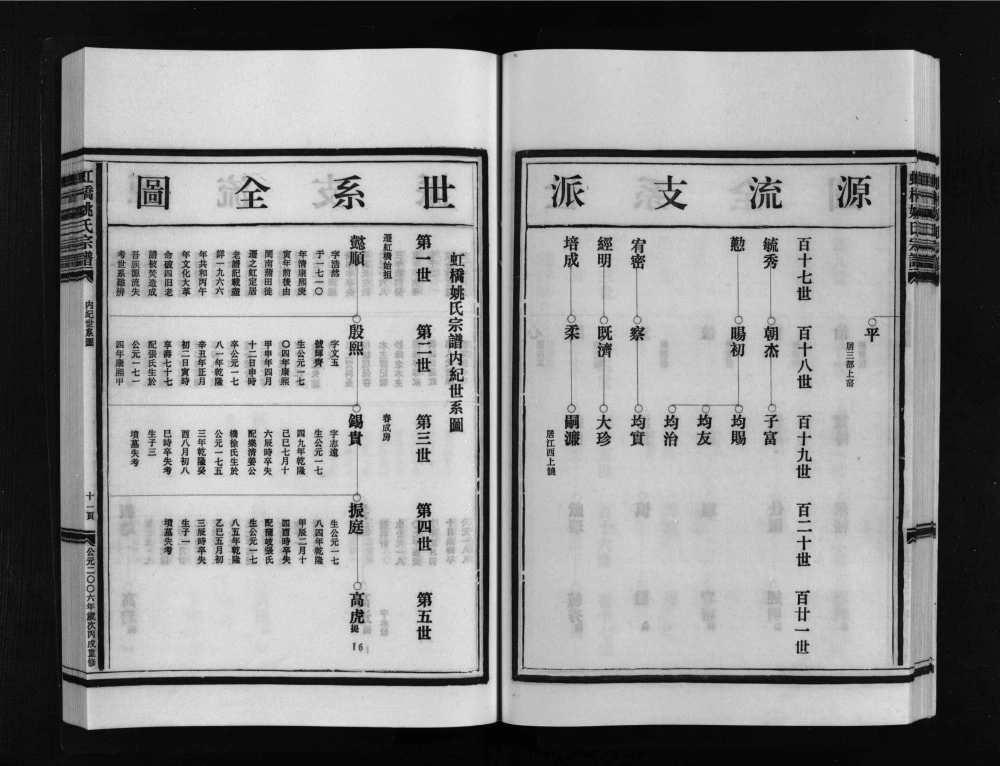 源流支派
平
居三都上窰
百十七世
百十八世
百十九世
百二十世
百廿一世
毓秀
朝杰
子富
懃
暘初
均賜
均友
均治
宥密
察
均實
經明
既濟
大珍
培成
柔
嗣濂
居江西上饒
世系全圖
虹橋姚氏宗譜內紀世系圖
第一世
第二世
第三世
第四世
第五世
遷虹橋始祖
懿順
字浩然
于一七一〇
年清康熙庚
寅年前後由
閩南莆田徙
遷之虹定居
老譜記載盡
詳一九六六
年共和丙午
年文化大革
命破四旧老
譜被焚造成
吾族源流失
考世系難辨
殷熙
字文玉
號輝齊
生公元一七
〇四年康熙
甲申年四月
十二日申時
卒公元一七
八一年乾隆
辛丑年正月
初二日寅時
享壽七十七
配張氏生於
公元一七一
四年康熙甲
春成房
錫貴
字志遠
生公元一七
四九年乾隆
己巳七月十
六辰時卒失
配樂清姜公
橋徐氏生於
公元一七五
三年乾隆癸
酉八月初八
巳時卒失考
生子三
墳墓失考
振庭
生公元一七
八四年乾隆
甲辰二月十
四酉時卒失
配蒲岐張氏
生公元一七
八五年乾隆
乙巳五月初
三辰時卒失
生子一
墳墓失考
高虎
提
16
虹橋姚氏宗譜
內紀世系圖
十一頁
公元二〇〇六年歲次丙戌重修